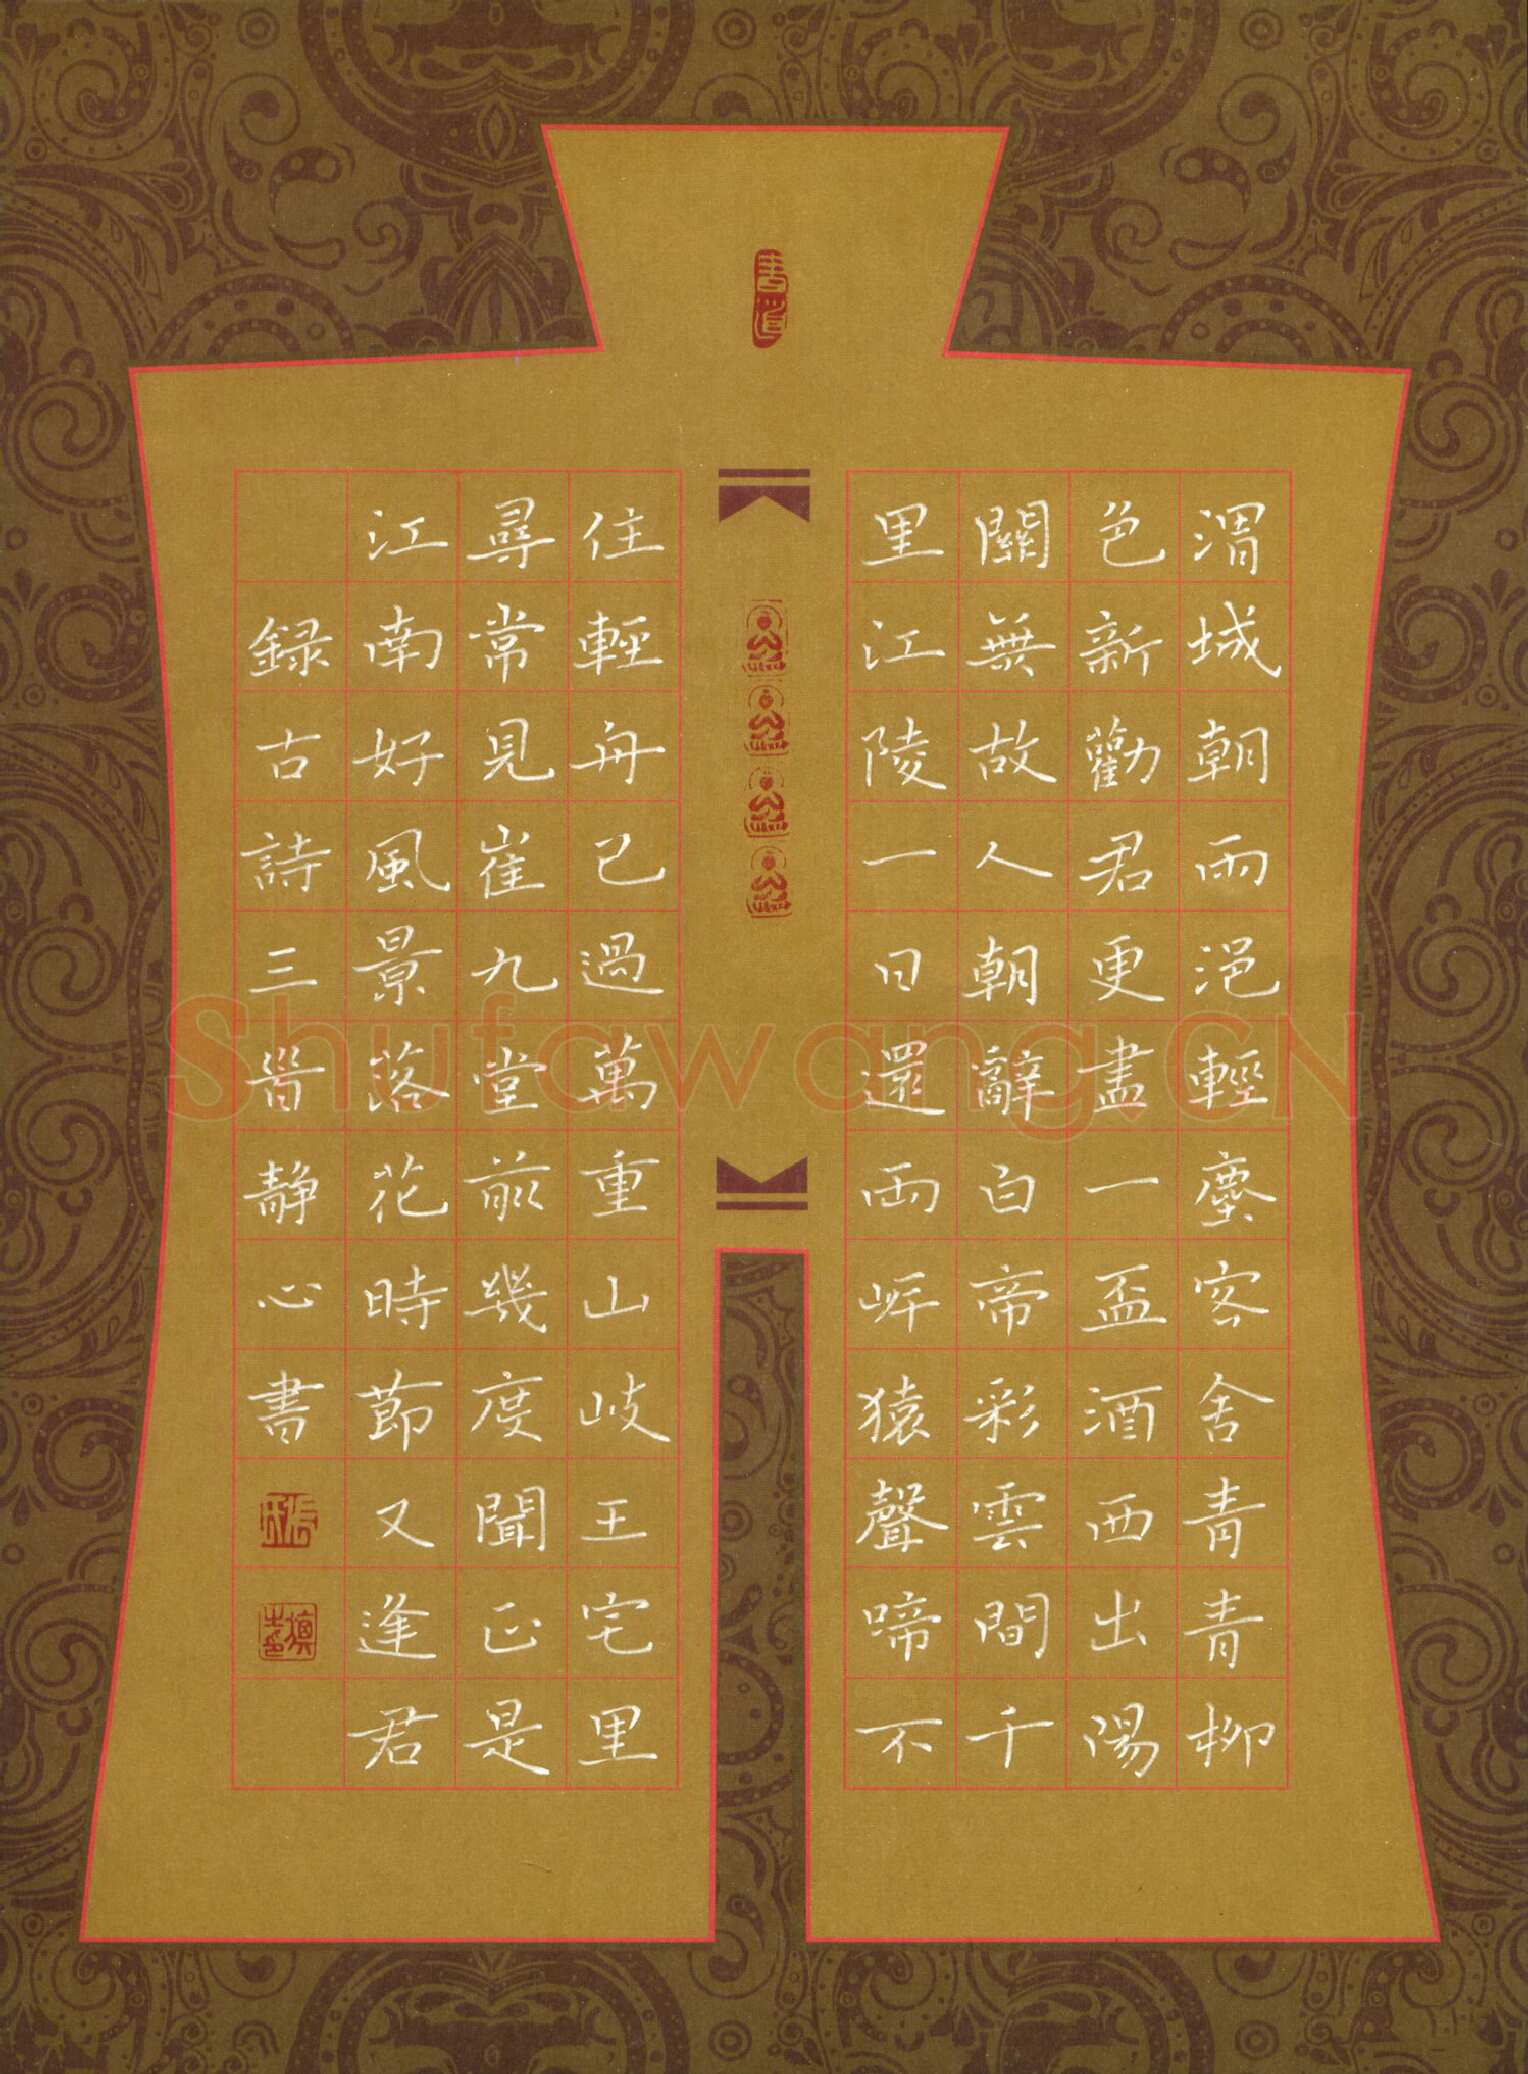 渭城朝雨浥輕塵客舍青青柳
色新勸君更盡一盃酒西出陽
關無故人朝辭白帝彩雲間千
里江陵一日還兩岸猿聲啼不
住輕舟已過萬重山岐王宅里
尋常見崔九堂前幾度聞正是
江南好風景落花時節又逢君
録古詩三首静心書
Shufawang.CN